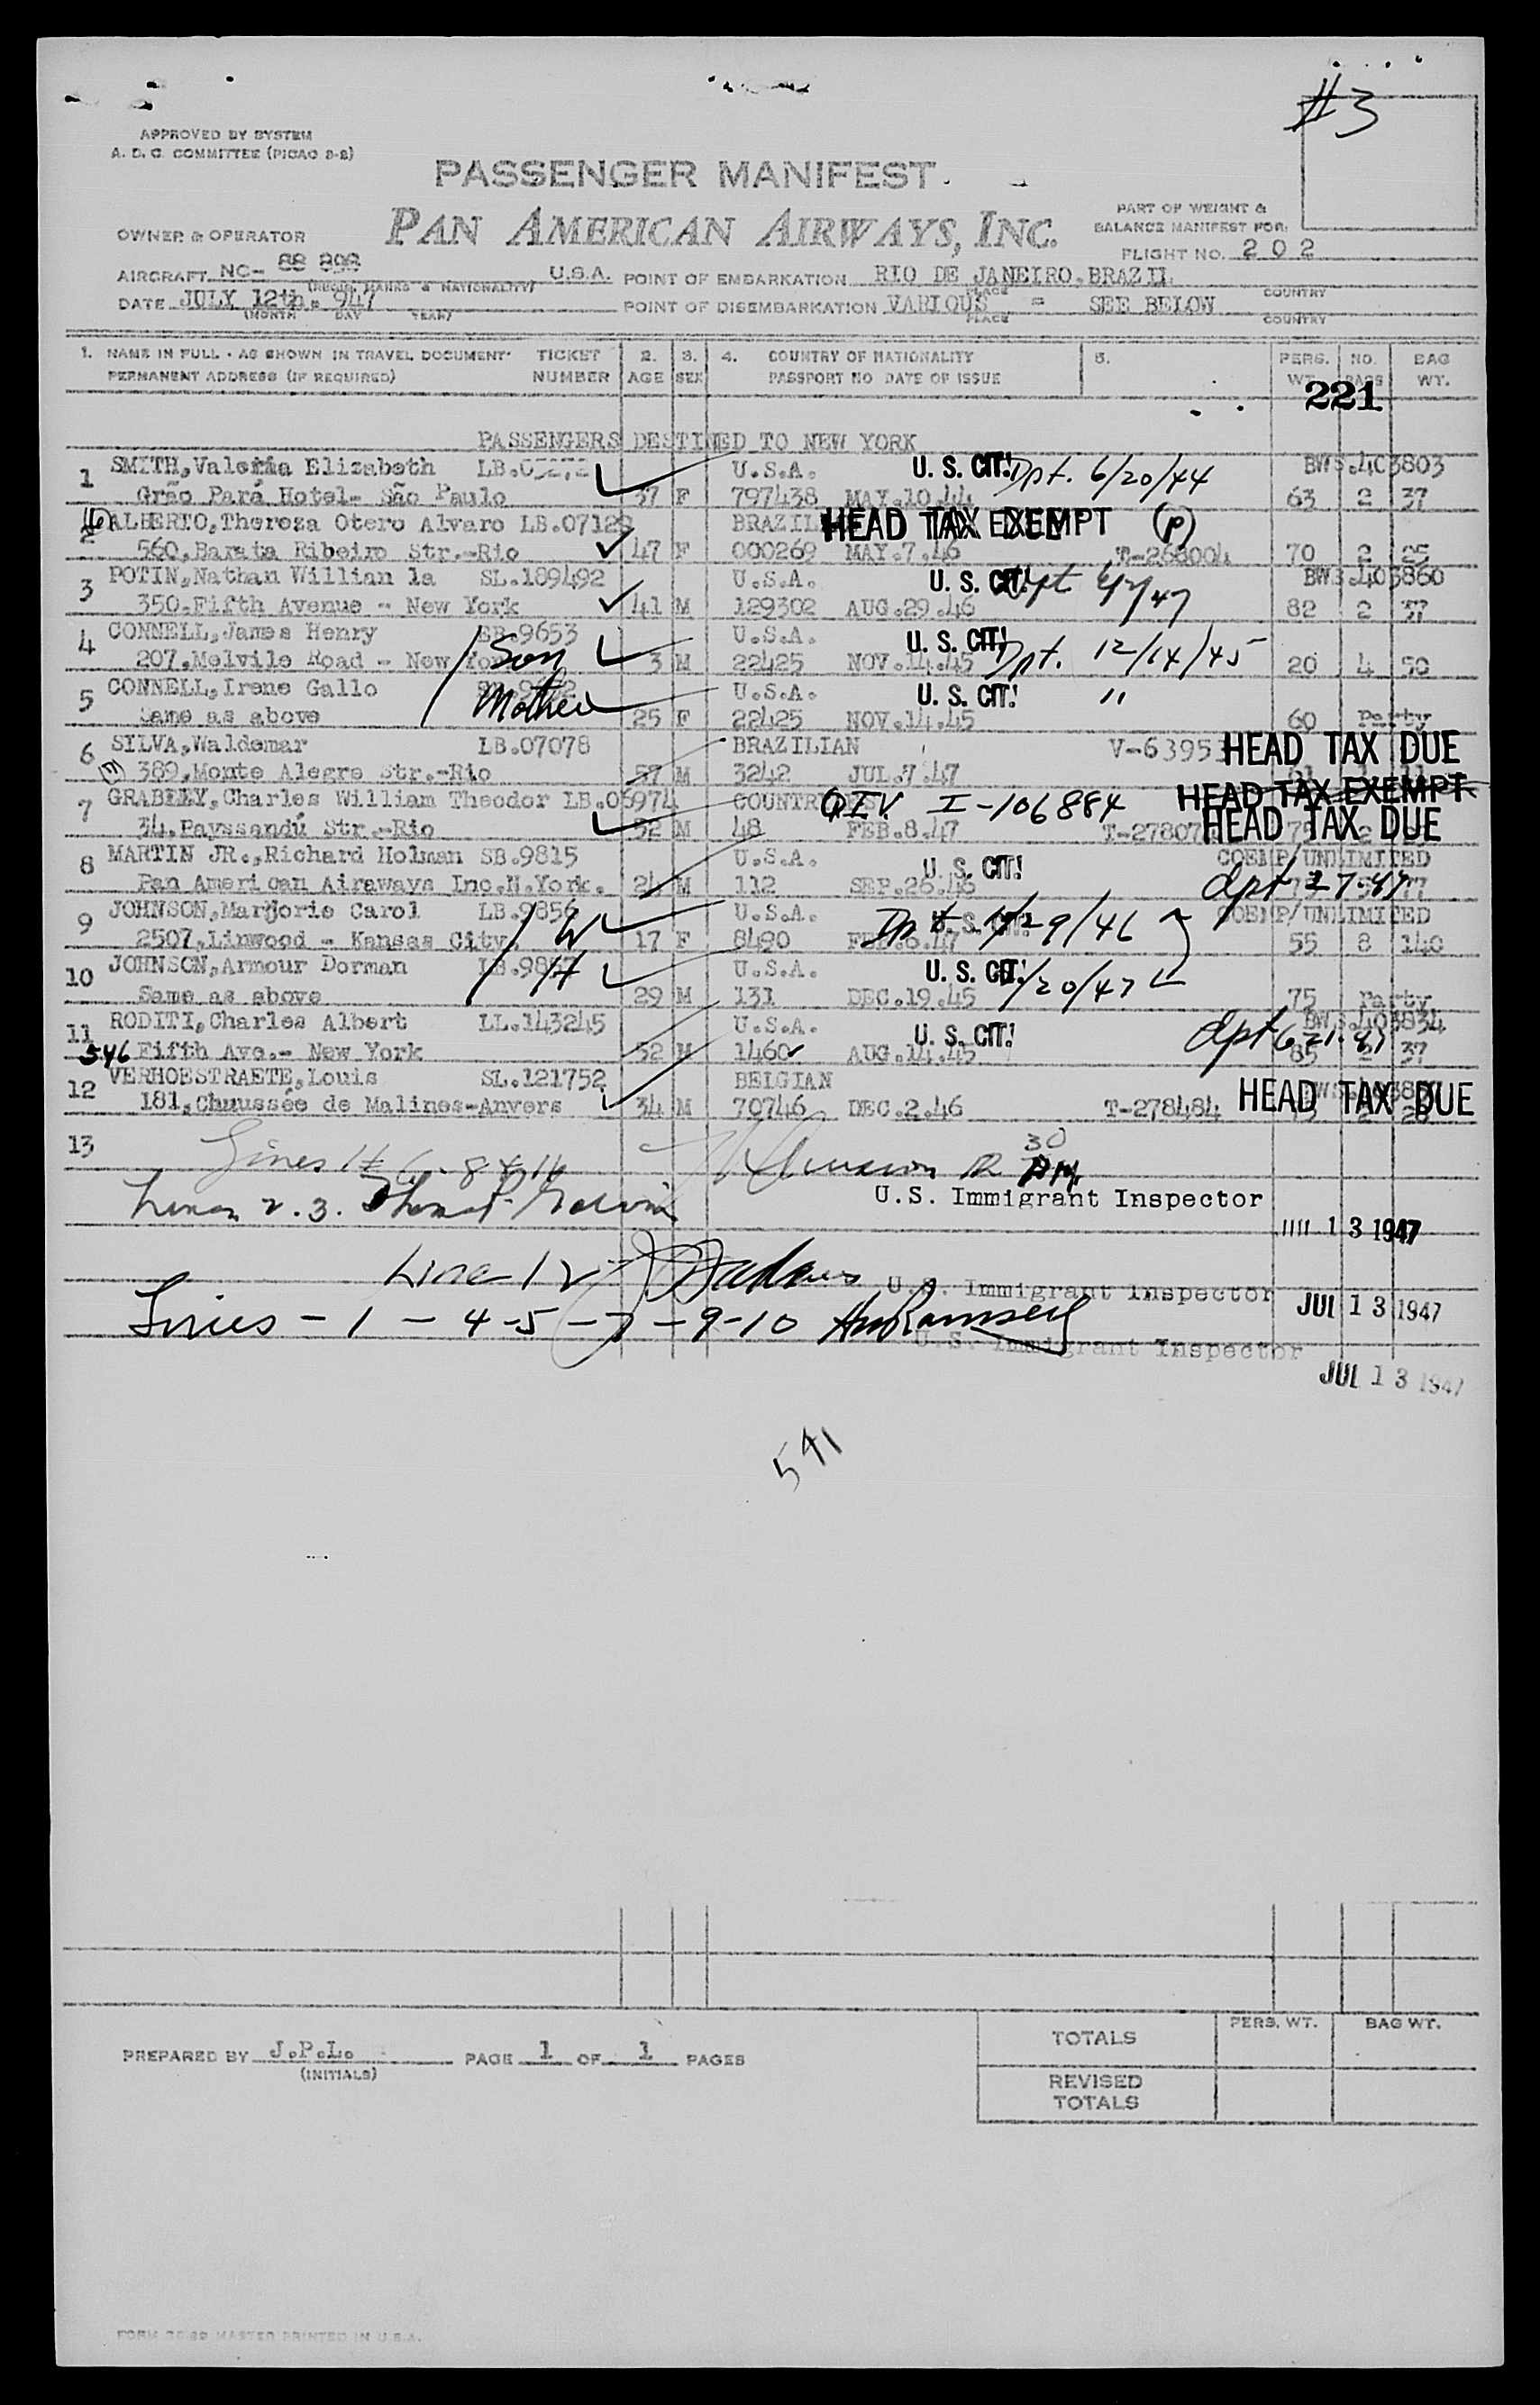 #3
APPROVED BY SYSTEM
A. D. C. COMMITTEE (PICAO 8-2)
PASSENGER MANIFEST
PAN AMERICAN AIRWAYS, INC.
PART OF WEIGHT &
BALANCE MANIFEST FOR:
OWNER & OPERATOR
FLIGHT NO. 2 0 2
AIRCRAFT NC- 88 898 U.S.A. POINT OF EMBARKATION RIO DE JANEIRO.BRAZIL
PLACE COUNTRY
DATE JULY 12th. 947 POINT OF DISEMBARKATION VARIOUS = SEE BELOW
(MONTH DAY YEAR) PLACE COUNTRY
1. NAME IN FULL - AS SHOWN IN TRAVEL DOCUMENT TICKET 2. 3. 4. COUNTRY OF NATIONALITY 5. PERS. NO. BAG
PERMANENT ADDRESS (IF REQUIRED) NUMBER AGE SEX PASSPORT NO DATE OF ISSUE WT. BAGS WT.
221
PASSENGERS DESTINED TO NEW YORK
1 SMITH,Valeria Elizabeth U.S.A. U. S. CIT! Dpt. 6/20/44 BWS.403803
Grão Pará Hotel- São Paulo 37 F 797438 MAY.10.44 63 2 37
2 ALBERTO,Thereza Otero Alvaro HEAD TAX EXEMPT (P)
560,Barata Ribeiro Str.-Rio 47 F 000269 MAY.7.46 T-268004 70 2 25
3 POTIN,Nathan Willian la SL.189492 U.S.A. U. S. CIT! BWS.403860
350.Fifth Avenue - New York 41 M 129302 AUG.29.46 82 2 37
4 CONNELL,James Henry SB.9653 U.S.A. U. S. CIT! Dpt. 12/14/45
207.Melvile Road - New Son 3 M 22425 NOV.14.45 20 4 50
5 CONNELL,Irene Gallo Mother U.S.A. U. S. CIT! "
Same as above 25 F 22425 NOV.14.45 60 Party
6 SILVA,Waldemar LB.07078 BRAZILIAN HEAD TAX DUE
389,Monte Alegre Str.-Rio 57 M 3242 JUL.7.47
7 GRABLEY,Charles William Theodor LB.06974 QIV. I-106884 HEAD TAX EXEMPT
34.Payssandú Str.-Rio 52 M 48 FEB.8.47 HEAD TAX DUE
8 MARTIN JR.,Richard Holman SB.9815 U.S.A. U. S. CIT! COEMP/UNLIMITED
Pan American Airaways Inc.N.York. 24 M 112 SEP.26.46
9 JOHNSON,Marjorie Carol LB.9856 W U.S.A. COEMP/UNLIMITED
2507,Linwood - Kansas City 17 F 8490 FEB.6.47 55 8 140
10 JOHNSON,Armour Dorman H U.S.A. U. S. CIT!
Same as above 29 M 131 DEC.19.45 75 Party
11 RODITI,Charles Albert LL.143245 U.S.A. U. S. CIT! BWS.403834
546 Fifth Ave.- New York 52 M 1460 AUG.14.45 85 2 37
12 VERHOESTRAETE,Louis SL.121752 BELGIAN
181,Chaussée de Malines-Anvers 34 M 70746 DEC.2.46 T-278484 HEAD TAX DUE
13
U.S. Immigrant Inspector
13 1947
Line 12
U.S. Immigrant Inspector JUL 13 1947
Lines - 1 - 4-5 - 7 - 9-10
U.S. Immigrant Inspector
JUL 13 1947
541
PREPARED BY J.P.L. PAGE 1 OF 1 PAGES
(INITIALS)
PERS. WT. BAG WT.
TOTALS
REVISED
TOTALS